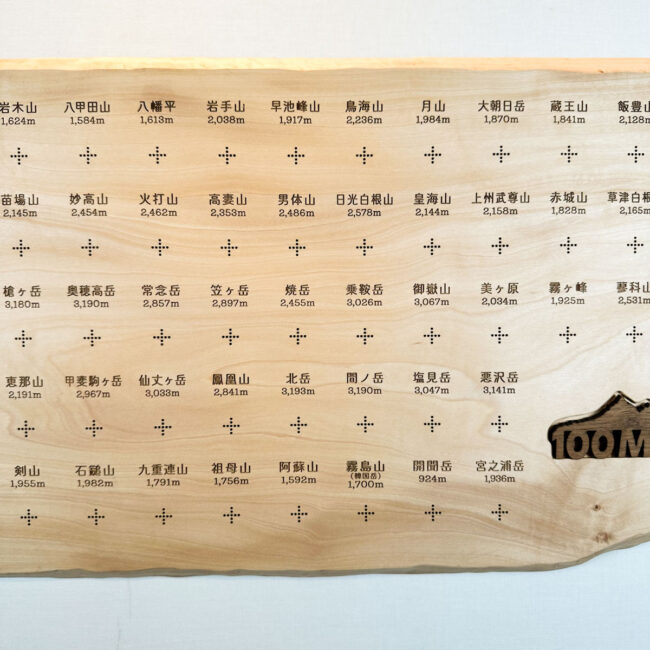 岩木山 八甲田山 八幡平 岩手山 早池峰山 鳥海山 月山 大朝日岳 蔵王山 飯豊山
1,624m 1,584m 1,613m 2,038m 1,917m 2,236m 1,984m 1,870m 1,841m 2,128m
苗場山 妙高山 火打山 高妻山 男体山 日光白根山 皇海山 上州武尊山 赤城山 草津白根
2,145m 2,454m 2,462m 2,353m 2,486m 2,578m 2,144m 2,158m 1,828m 2,165m
槍ヶ岳 奥穂高岳 常念岳 笠ヶ岳 焼岳 乗鞍岳 御嶽山 美ヶ原 霧ヶ峰 蓼科山
3,180m 3,190m 2,857m 2,897m 2,455m 3,026m 3,067m 2,034m 1,925m 2,531m
恵那山 甲斐駒ヶ岳 仙丈ヶ岳 鳳凰山 北岳 間ノ岳 塩見岳 悪沢岳
2,191m 2,967m 3,033m 2,841m 3,193m 3,190m 3,047m 3,141m
100M
剣山 石鎚山 九重連山 祖母山 阿蘇山 霧島山 開聞岳 宮之浦岳
(韓国岳)
1,955m 1,982m 1,791m 1,756m 1,592m 1,700m 924m 1,936m